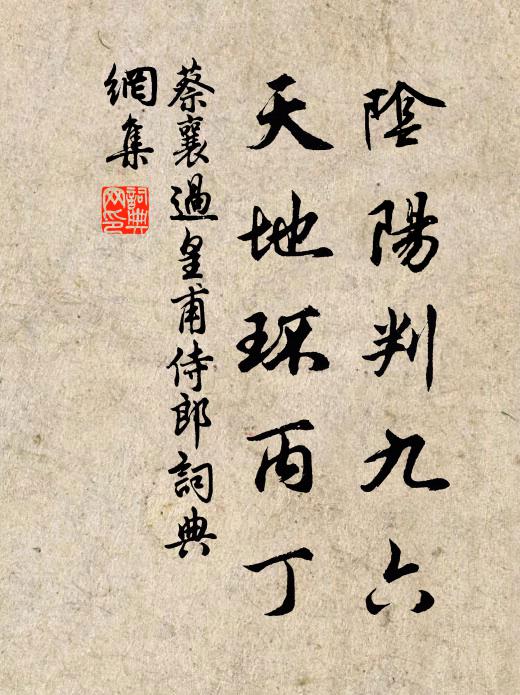 陰陽判九六
天地環丙丁
蔡襄過皇甫侍郎詞典
網集
詞典网印